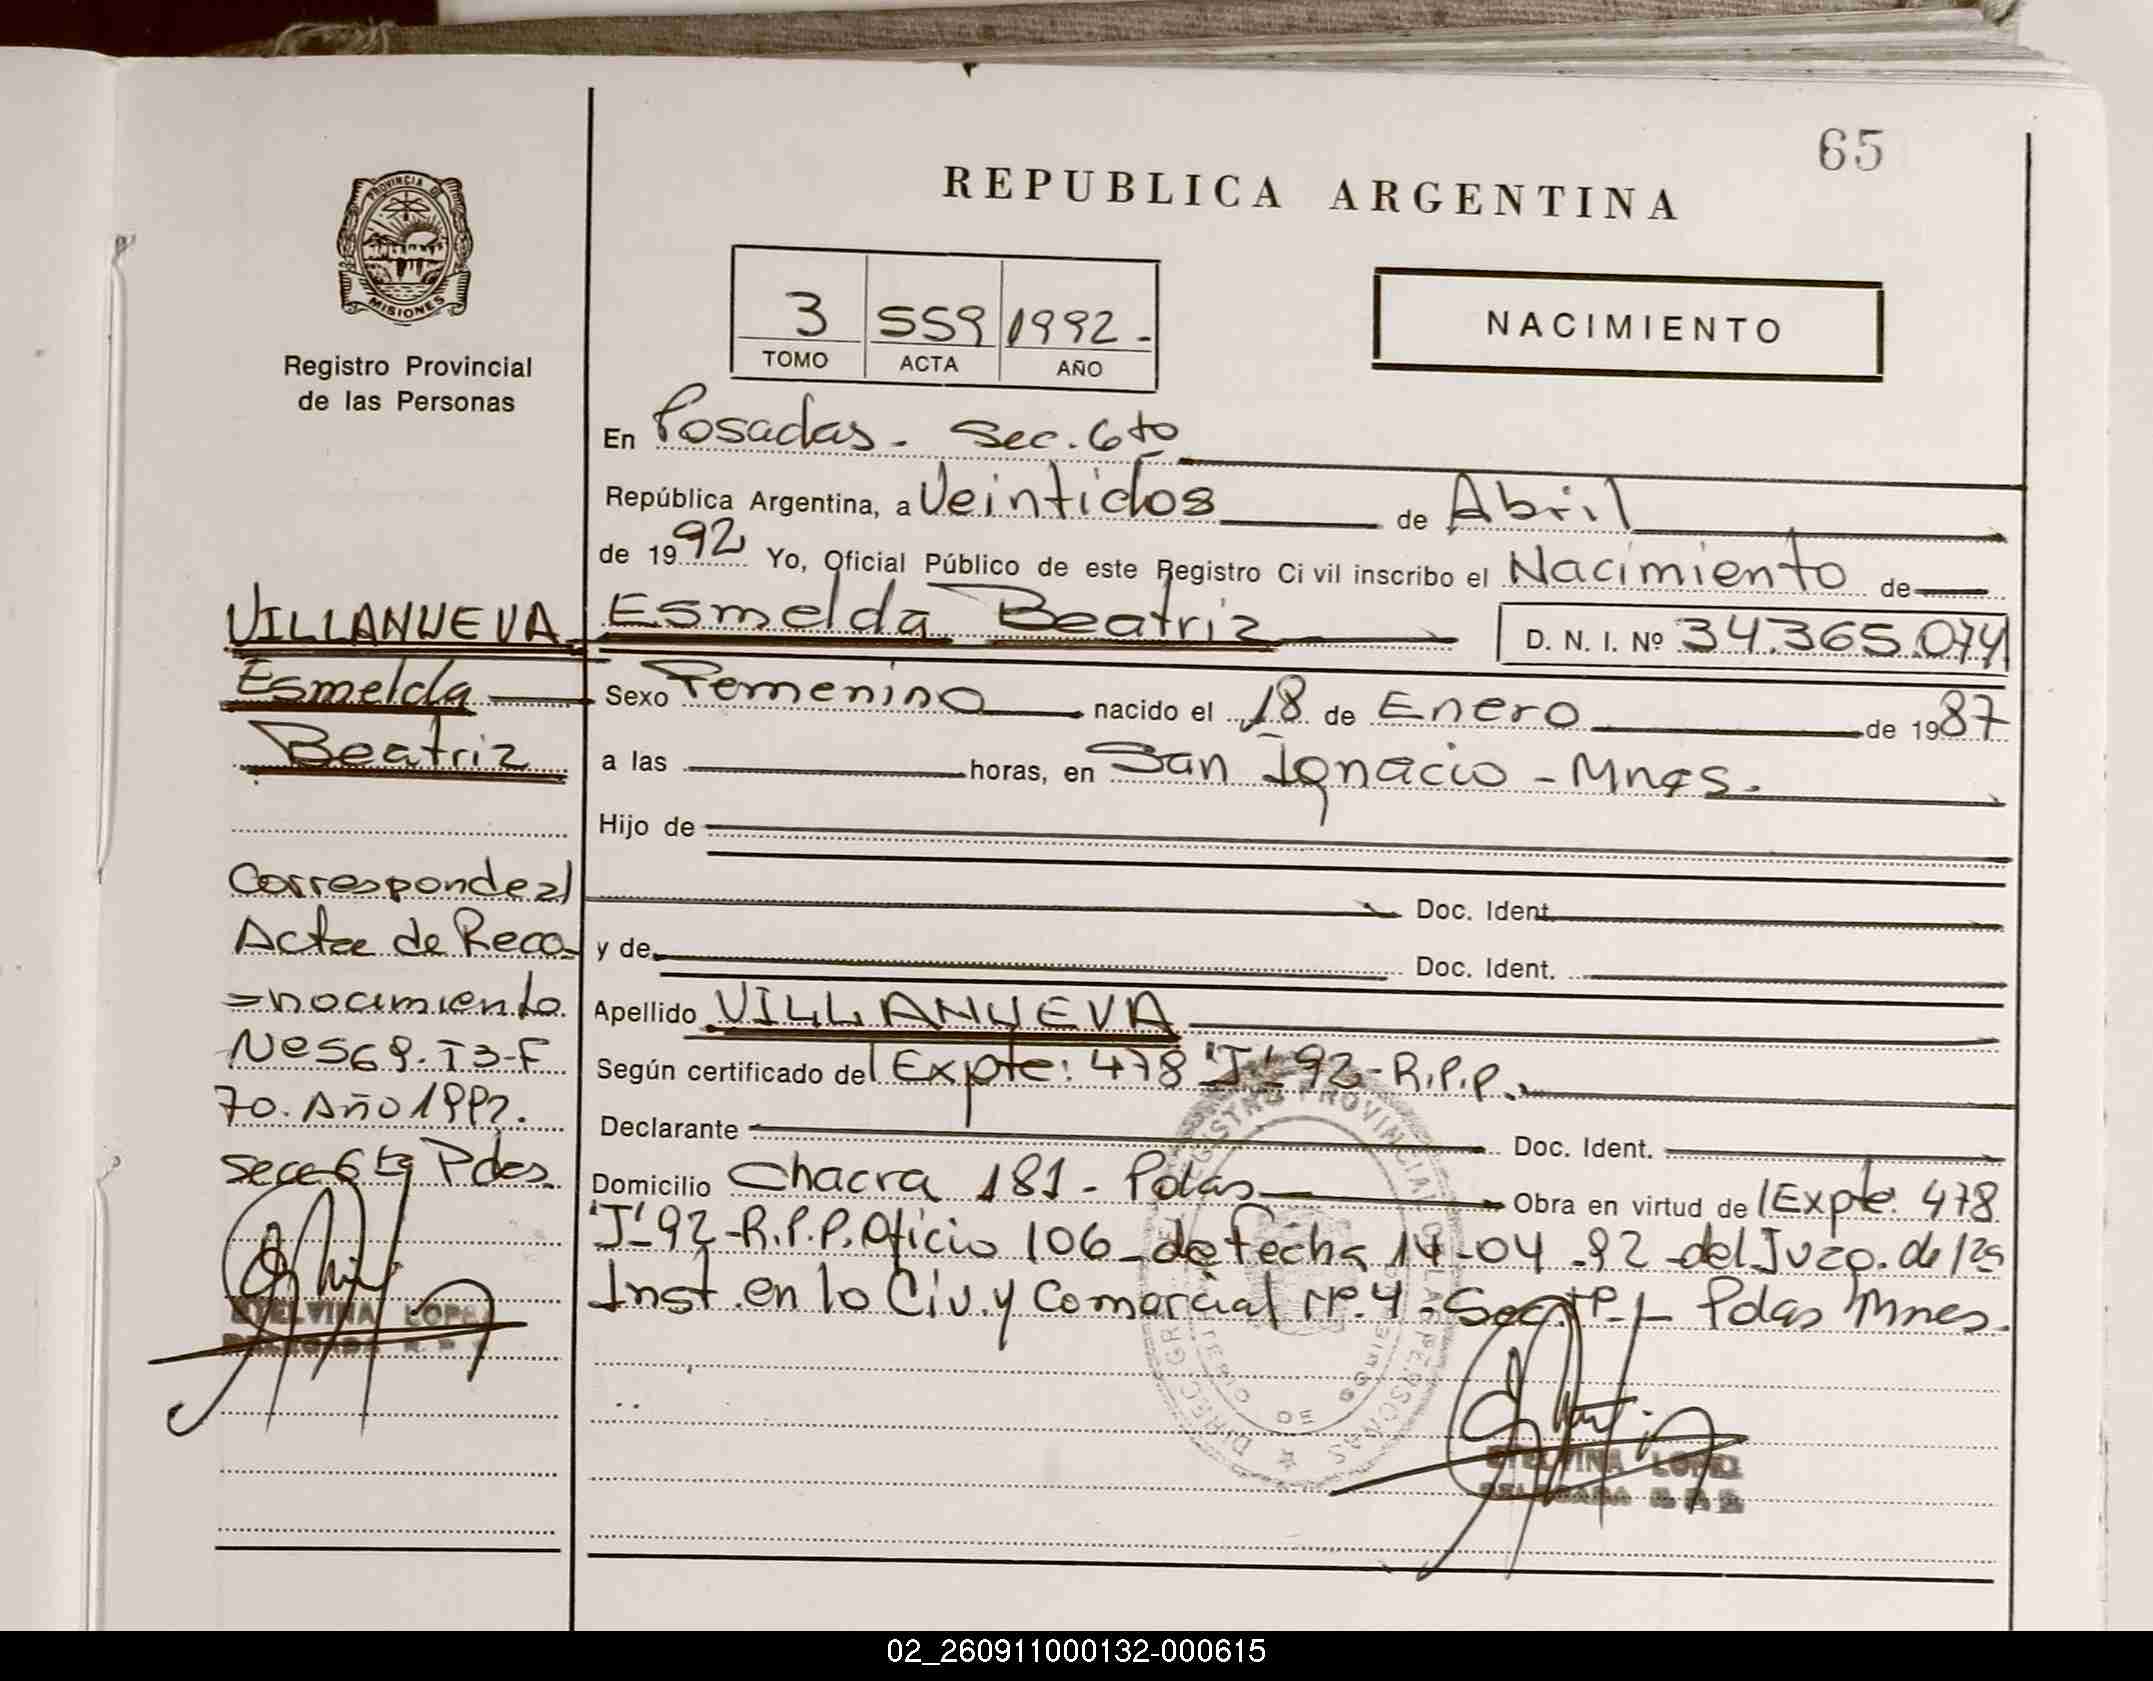 65
REPUBLICA ARGENTINA
PROVINCIA DE
MISIONES
Registro Provincial
de las Personas
3 559 1992.-
TOMO ACTA AÑO
NACIMIENTO
En Posadas - Sec. 6to
República Argentina, a Veintidos de Abril
de 1992 Yo, Oficial Público de este Registro Civil inscribo el Nacimiento de
Esmelda Beatriz D. N. I. Nº 34.365.074
Sexo Femenino nacido el 18 de Enero de 1987
a las horas, en San Ignacio - Mnes.
Hijo de
Doc. Ident.
y de Doc. Ident.
Apellido VILLANUEVA
Según certificado del Expte: 478 "J"-92-R.P.P.
Declarante Doc. Ident.
Domicilio Chacra 181 - Pdas Obra en virtud del Expte. 478
"J"-92-R.P.P. Oficio 106 - de fecha 14-04-92 del Juzg. de 1as
Inst. en lo Civ. y Comercial Nº 4 - Sec. 1 - Pdas Mnes.
VILLANUEVA
Esmelda
Beatriz
Corresponde al
Acta de Reco-
=nocimiento
Nº 569-T3-F
70. Año 1992.
Secc 6ta Pdas.
ETELVINA LOPEZ
DELEGADA R. P.
ETELVINA LOPEZ
DELEGADA R. P. P.
02_260911000132-000615